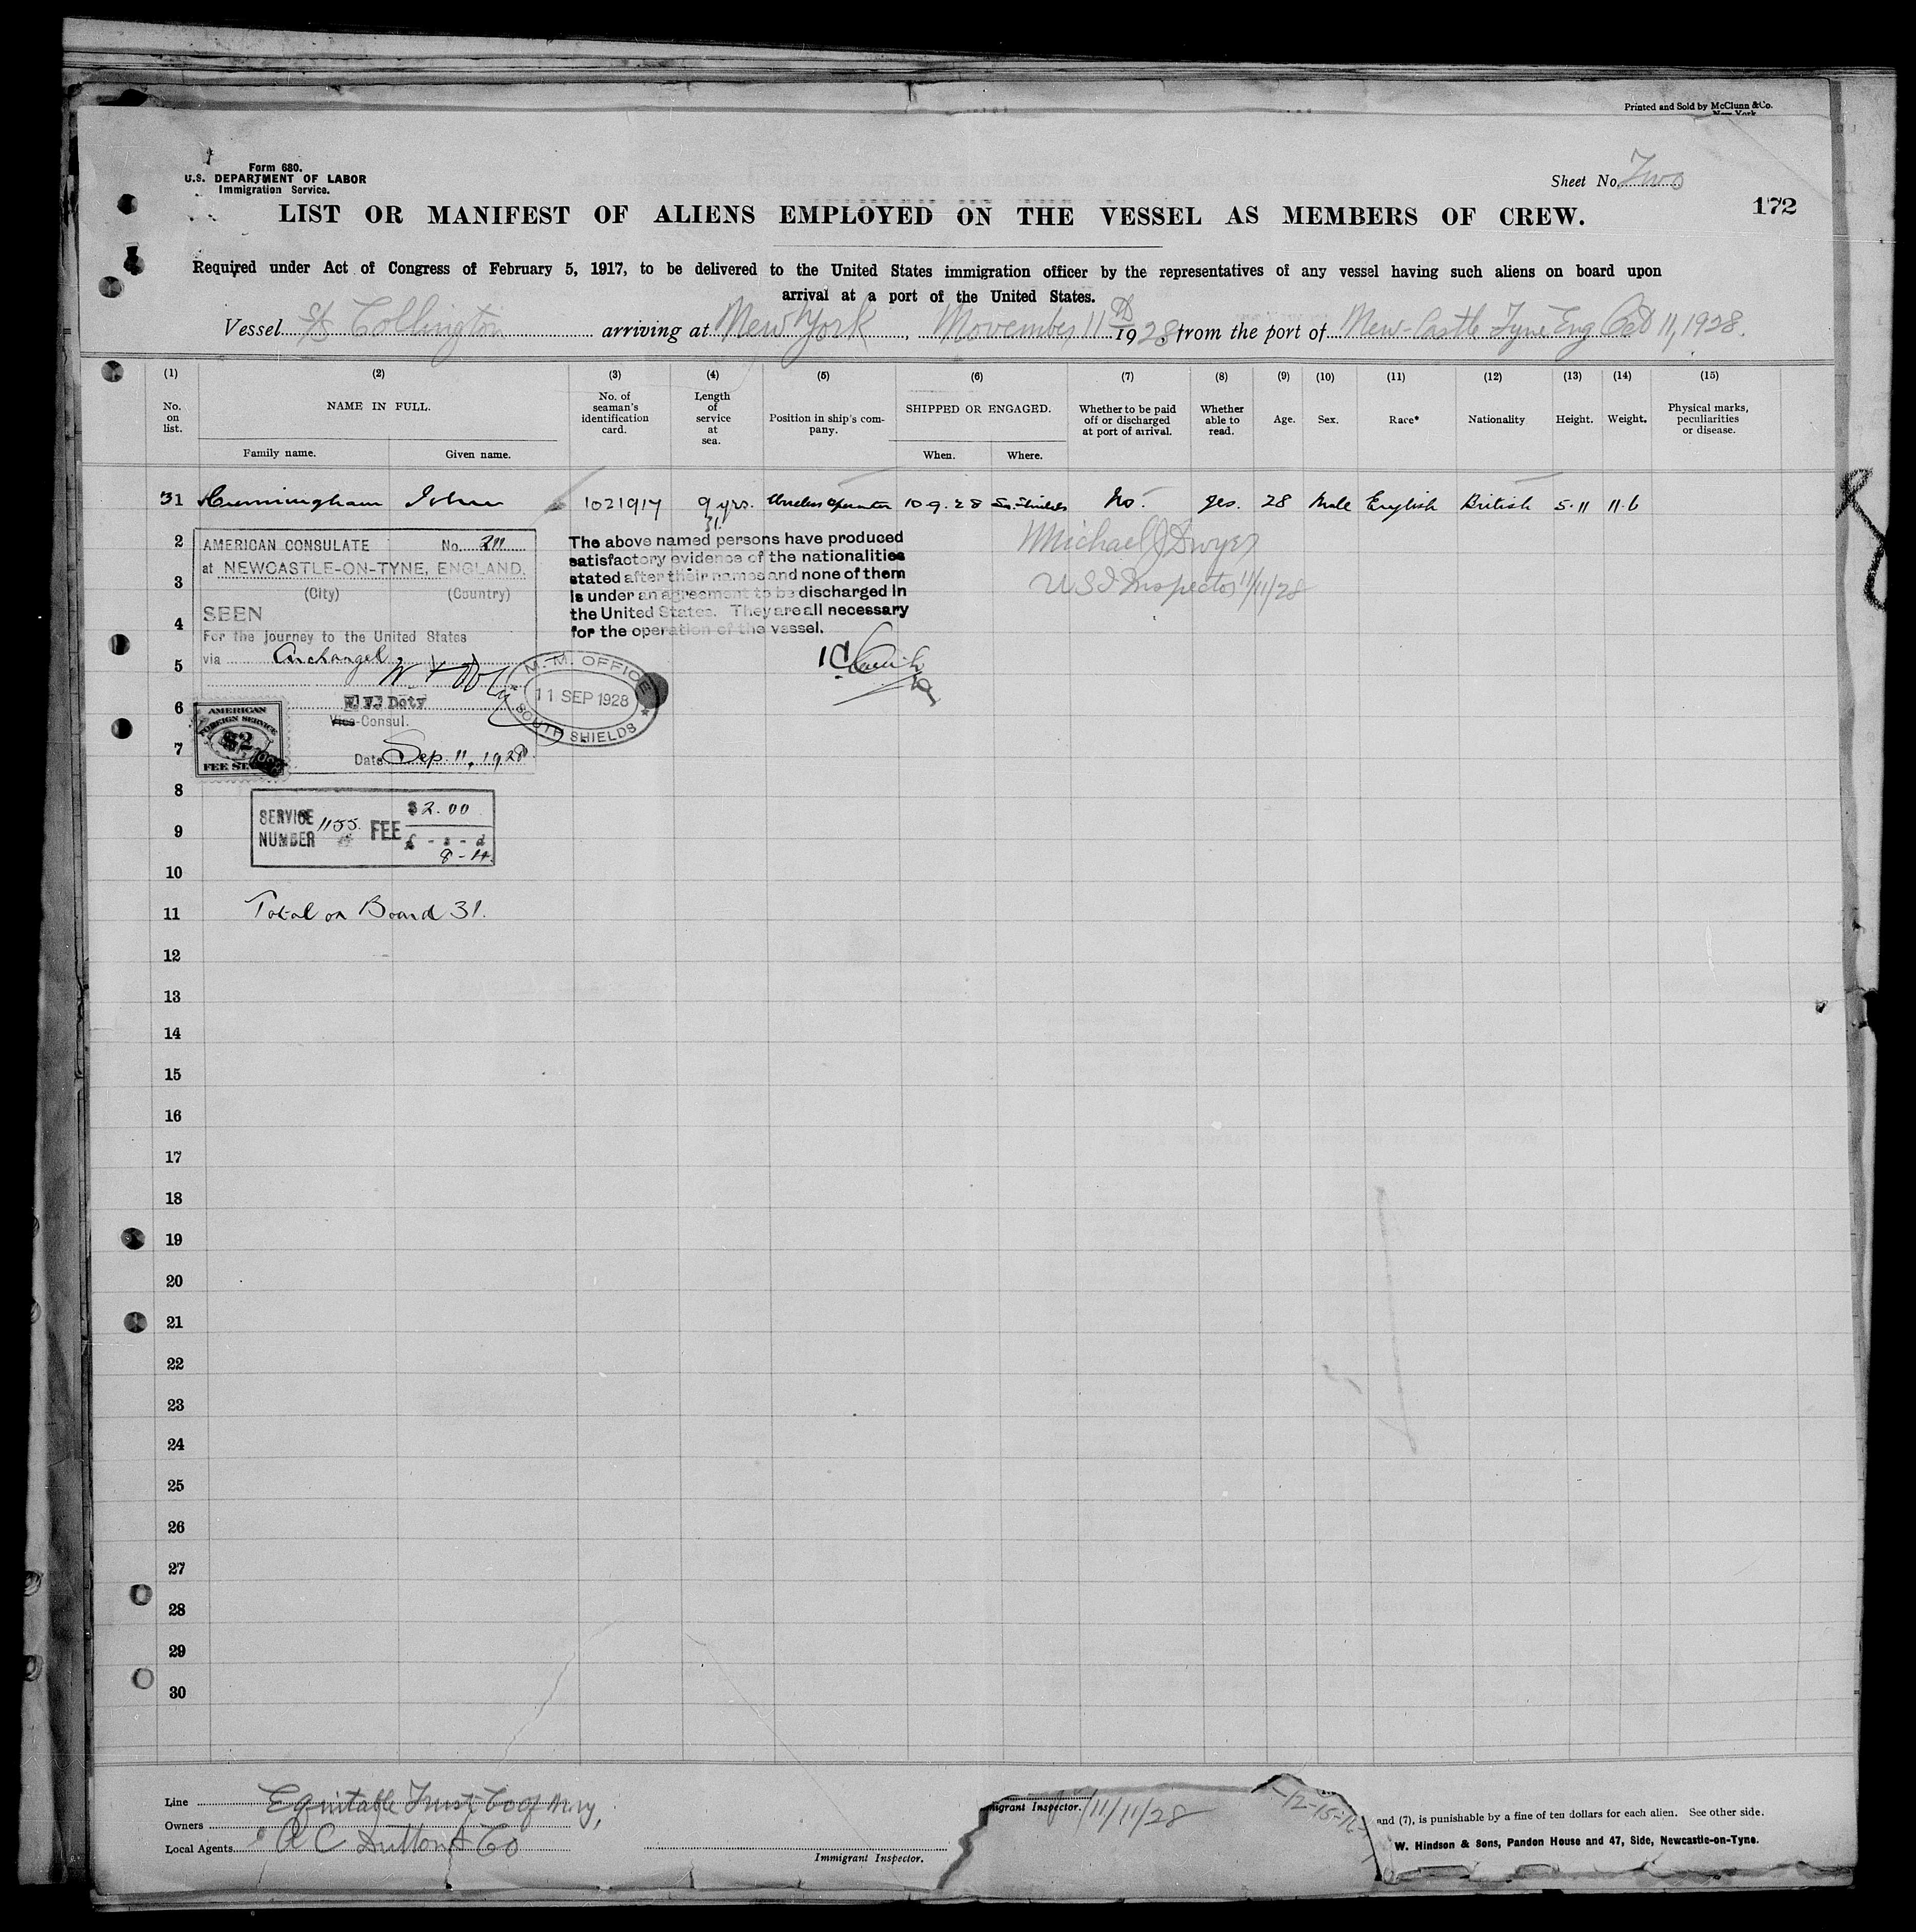 Printed and Sold by McClunn & Co.
New York
Form 680.
U.S. DEPARTMENT OF LABOR
Immigration Service.
Sheet No. Two
LIST OR MANIFEST OF ALIENS EMPLOYED ON THE VESSEL AS MEMBERS OF CREW.
172
Required under Act of Congress of February 5, 1917, to be delivered to the United States immigration officer by the representatives of any vessel having such aliens on board upon
arrival at a port of the United States.
Vessel S/S Collington arriving at New York, November 11th 1928, from the port of New-Castle Tyne Eng Oct 11, 1928.
(1) (2) (3) (4) (5) (6) (7) (8) (9) (10) (11) (12) (13) (14) (15)
No. on list. NAME IN FULL. Family name. Given name. No. of seaman's identification card. Length of service at sea. Position in ship's company. SHIPPED OR ENGAGED. When. Where. Whether to be paid off or discharged at port of arrival. Whether able to read. Age. Sex. Race* Nationality Height. Weight. Physical marks, peculiarities or disease.
31 Cunningham John 1021917 9 yrs. Wireless Operator 10.9.28 So. Shields No. Yes. 28 Male English British 5.11 11.6
31.
2
3
4
5
6
7
8
9
10
11
12
13
14
15
16
17
18
19
20
21
22
23
24
25
26
27
28
29
30
AMERICAN CONSULATE No. 211
at NEWCASTLE-ON-TYNE, ENGLAND.
(City) (Country)
SEEN
For the journey to the United States
via Archangel
W. W. Doty
Vice-Consul.
Date Sep. 11, 1928
AMERICAN
FOREIGN SERVICE
$2
FEE STAMP
M. M. OFFICE
11 SEP 1928
SOUTH SHIELDS
The above named persons have produced
satisfactory evidence of the nationalities
stated after their names and none of them
is under an agreement to be discharged in
the United States. They are all necessary
for the operation of the vessel.
Michael J Dwyer
U S I Inspector 11/11/28
SERVICE NUMBER 1155 FEE $2.00
£ - s - d
8 - 4
Total on Board 31.
Line
Equitable Trust Co of N.Y,
Owners
Local Agents A C Dutton & Co
Immigrant Inspector.
migrant Inspector. 11/11/28
and (7), is punishable by a fine of ten dollars for each alien. See other side.
W. Hindson & Sons, Pandon House and 47, Side, Newcastle-on-Tyne.